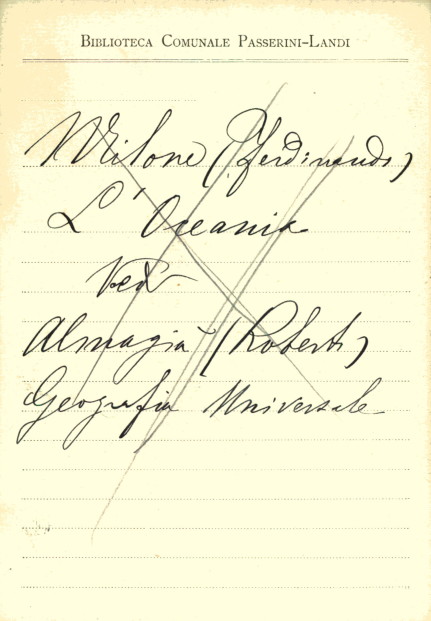 BIBLIOTECA COMUNALE PASSERINI-LANDI
Milone (Ferdinando)
L'Oceania
Ved
Almagià (Roberto)
Geografia Universale